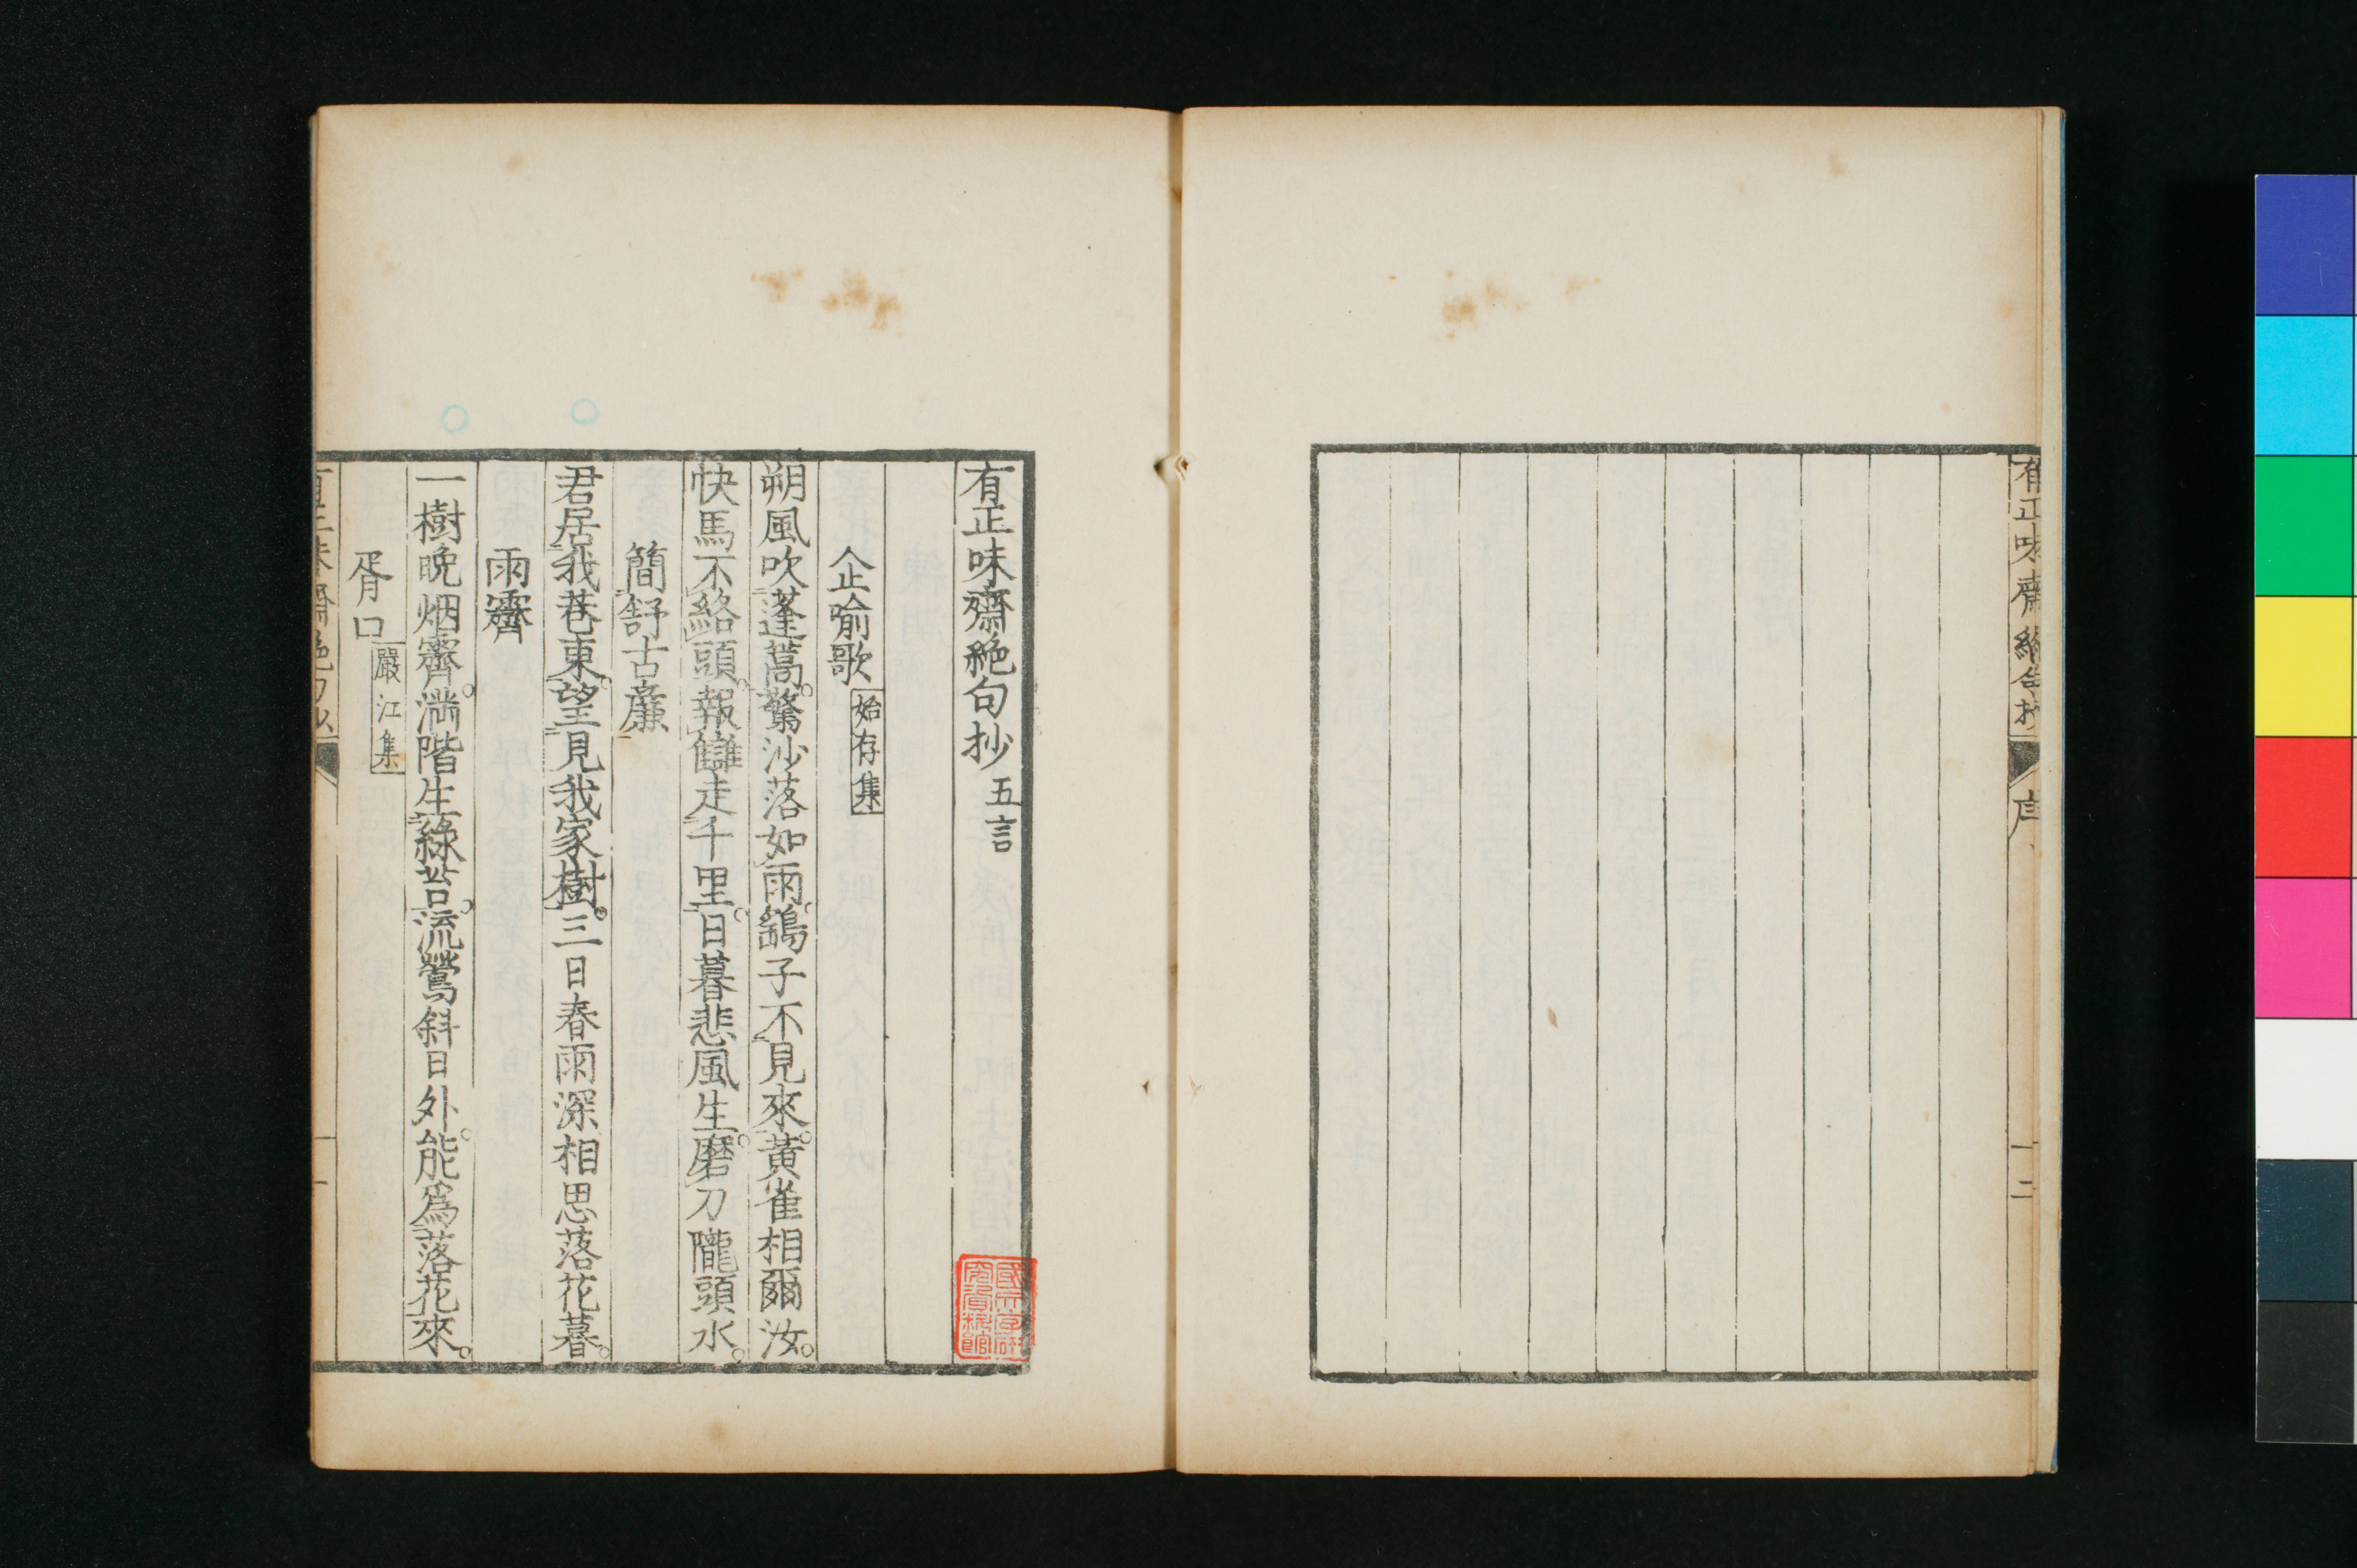 有正味齋絶句抄
序
二
有正味齋絶句抄 五言
企喻歌 始存集
朔風吹蓬蒿。驚沙落如雨。鷂子不見來。黃雀相爾汝。
快馬不絡頭。報讎走千里。日暮悲風生。磨刀隴頭水。
簡舒古廉
君居我巷東。望見我家樹。三日春雨深相思落花暮。
雨霽
一樹晩烟霽。滿階生綠苔。流鶯斜日外。能爲落花來。
胥口 嚴江集
國文學研究資料館